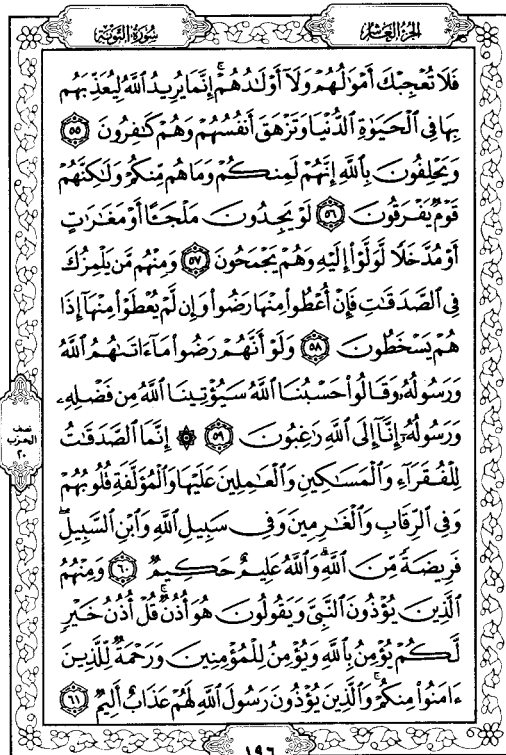 الجزء العاشر
سورة التوبة
فَلَا تُعْجِبْكَ أَمْوَٰلُهُمْ وَلَآ أَوْلَٰدُهُمْ ۚ إِنَّمَا يُرِيدُ ٱللَّهُ لِيُعَذِّبَهُم
بِهَا فِى ٱلْحَيَوٰةِ ٱلدُّنْيَا وَتَزْهَقَ أَنفُسُهُمْ وَهُمْ كَٰفِرُونَ ٥٥
وَيَحْلِفُونَ بِٱللَّهِ إِنَّهُمْ لَمِنكُمْ وَمَا هُم مِّنكُمْ وَلَٰكِنَّهُمْ
قَوْمٌ يَفْرَقُونَ ٥٦ لَوْ يَجِدُونَ مَلْجَـًٔا أَوْ مَغَٰرَٰتٍ
أَوْ مُدَّخَلًا لَّوَلَّوْا۟ إِلَيْهِ وَهُمْ يَجْمَحُونَ ٥٧ وَمِنْهُم مَّن يَلْمِزُكَ
فِى ٱلصَّدَقَٰتِ فَإِنْ أُعْطُوا۟ مِنْهَا رَضُوا۟ وَإِن لَّمْ يُعْطَوْا۟ مِنْهَآ إِذَا
هُمْ يَسْخَطُونَ ٥٨ وَلَوْ أَنَّهُمْ رَضُوا۟ مَآ ءَاتَىٰهُمُ ٱللَّهُ
وَرَسُولُهُۥ وَقَالُوا۟ حَسْبُنَا ٱللَّهُ سَيُؤْتِينَا ٱللَّهُ مِن فَضْلِهِۦ
وَرَسُولُهُۥٓ إِنَّآ إِلَى ٱللَّهِ رَٰغِبُونَ ٥٩ ۞ إِنَّمَا ٱلصَّدَقَٰتُ
نصف
الحزب
٢٠
لِلْفُقَرَآءِ وَٱلْمَسَٰكِينِ وَٱلْعَٰمِلِينَ عَلَيْهَا وَٱلْمُؤَلَّفَةِ قُلُوبُهُمْ
وَفِى ٱلرِّقَابِ وَٱلْغَٰرِمِينَ وَفِى سَبِيلِ ٱللَّهِ وَٱبْنِ ٱلسَّبِيلِ ۖ
فَرِيضَةً مِّنَ ٱللَّهِ ۗ وَٱللَّهُ عَلِيمٌ حَكِيمٌ ٦٠ وَمِنْهُمُ
ٱلَّذِينَ يُؤْذُونَ ٱلنَّبِىَّ وَيَقُولُونَ هُوَ أُذُنٌ ۚ قُلْ أُذُنُ خَيْرٍ
لَّكُمْ يُؤْمِنُ بِٱللَّهِ وَيُؤْمِنُ لِلْمُؤْمِنِينَ وَرَحْمَةٌ لِّلَّذِينَ
ءَامَنُوا۟ مِنكُمْ ۚ وَٱلَّذِينَ يُؤْذُونَ رَسُولَ ٱللَّهِ لَهُمْ عَذَابٌ أَلِيمٌ ٦١
١٩٦